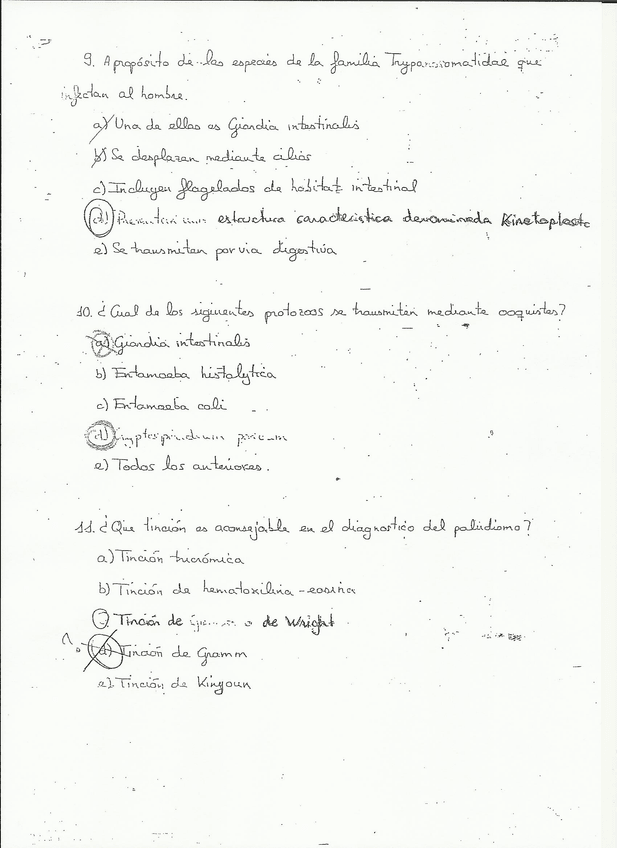 9. A propósito de las especies de la familia Trypanosomatidae que
infectan al hombre.
a) Una de ellas es Giardia intestinalis
b) Se desplazan mediante cilios
c) Incluyen flagelados de habitat intestinal
d) Presentan una estructura característica denominada Kinetoplasto
e) Se transmiten por via digestiva
10. ¿Cual de los siguientes protozoos se transmiten mediante ooquistes?
a) Giardia intestinalis
b) Entamoeba histolytica
c) Entamoeba coli
d)
e) Todos los anteriores.
11. ¿Que tinción es aconsejable en el diagnostico del paludismo?
a) Tinción tricrómica
b) Tinción de hematoxilina - eosina
Tinción de o de Wright
d) Tinción de Gramm
e) Tinción de Kinyoun